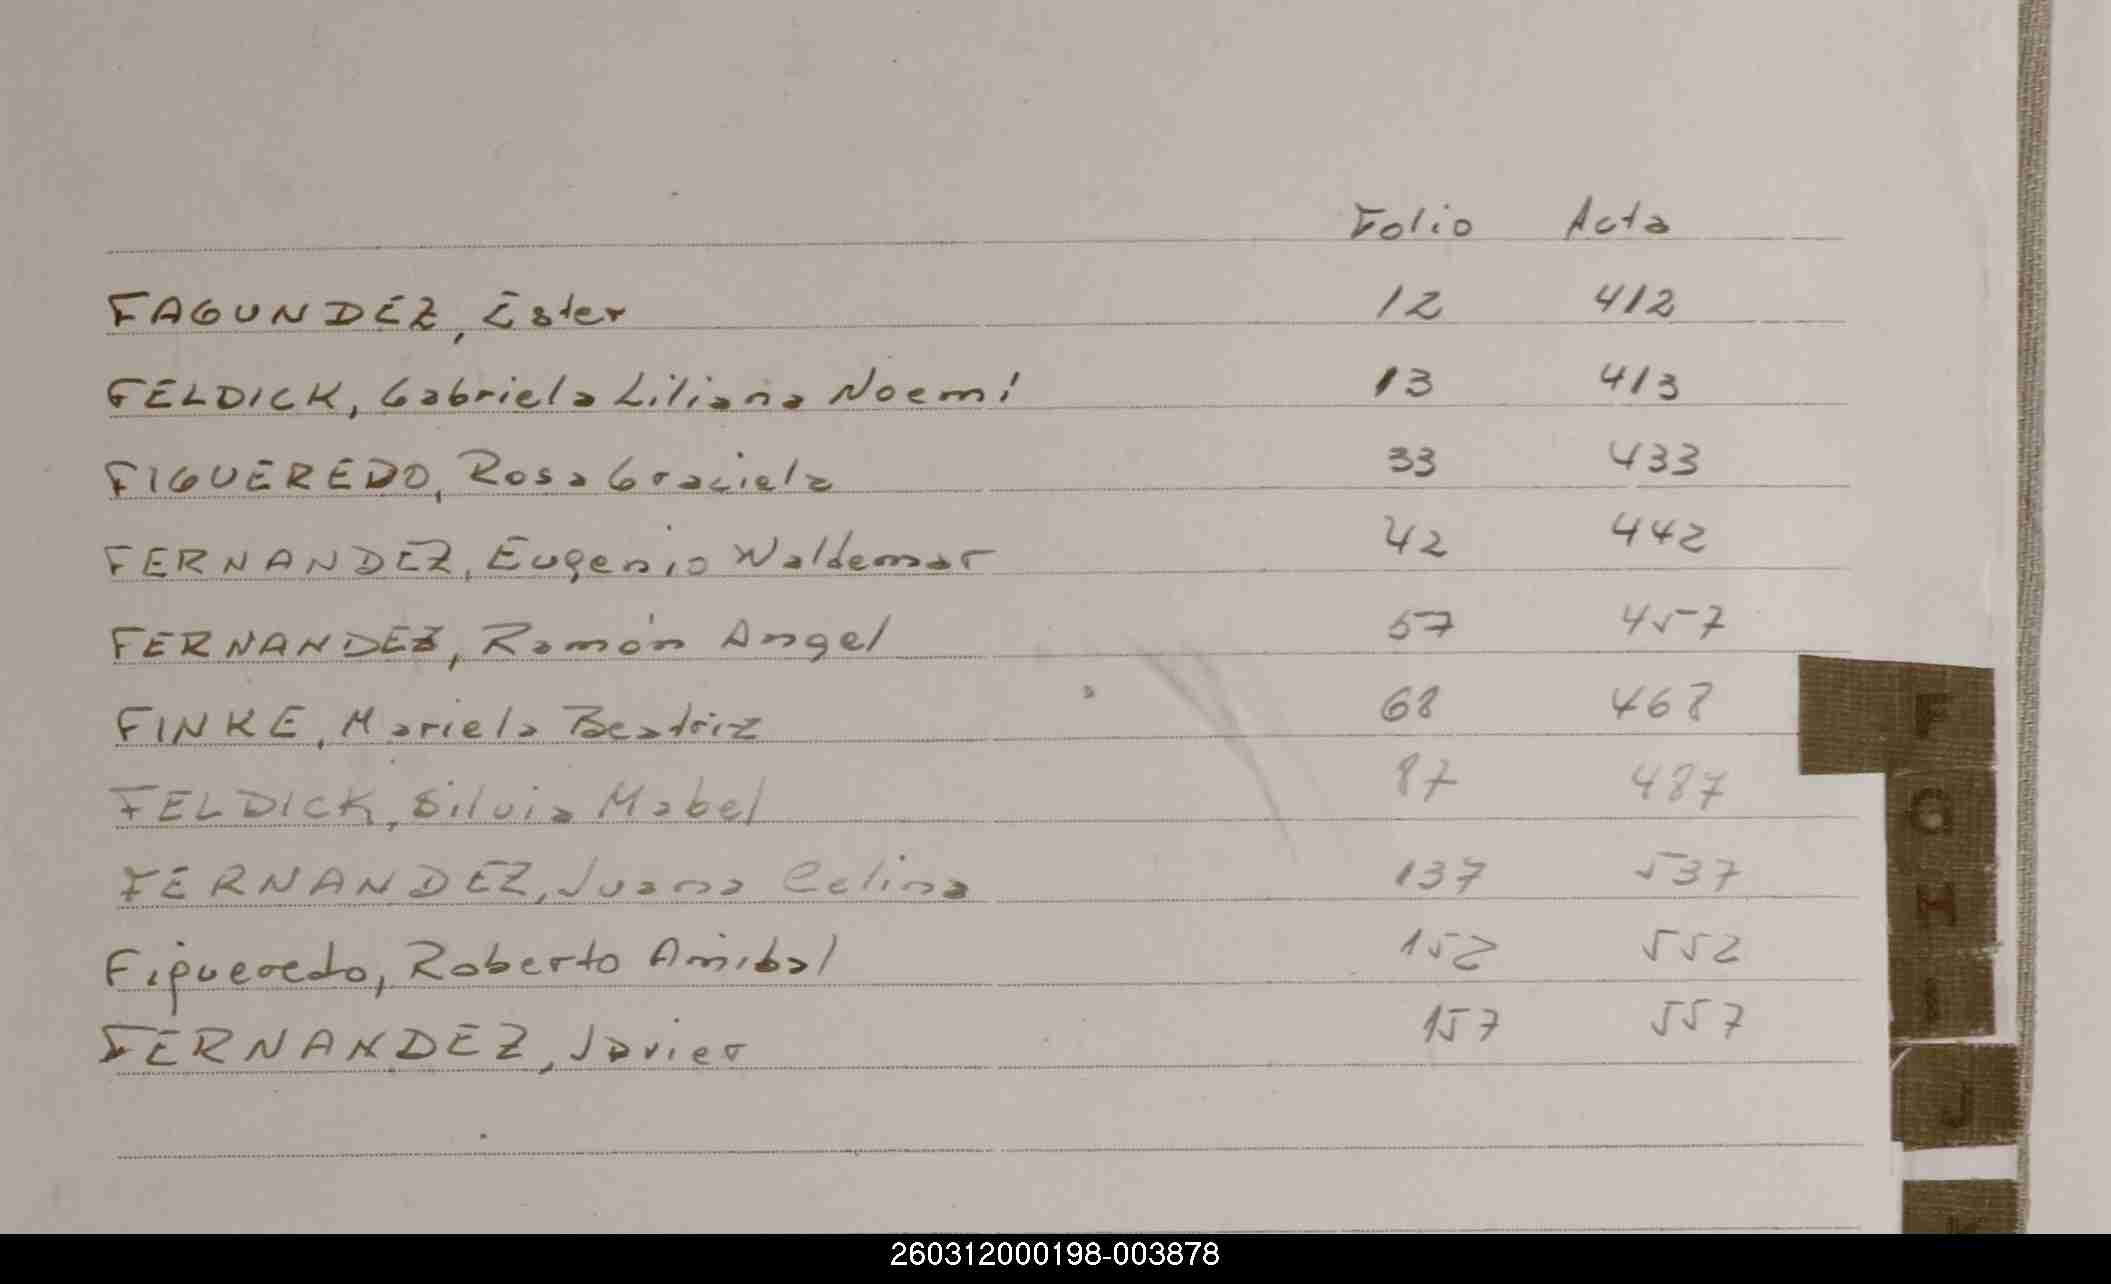 Folio Acta
FAGUNDEZ, Ester 12 412
FELDICK, Gabriela Liliana Noemí 13 413
FIGUEREDO, Rosa Graciela 33 433
FERNANDEZ, Eugenio Waldemar 42 442
FERNANDEZ, Ramón Angel 57 457
FINKE, Mariela Beatriz 68 468
FELDICK, Silvia Mabel 87 487
FERNANDEZ, Juana Celina 137 537
Figueredo, Roberto Anibal 152 552
FERNANDEZ, Javier 157 557
F
G
H
I
J
K
260312000198-003878